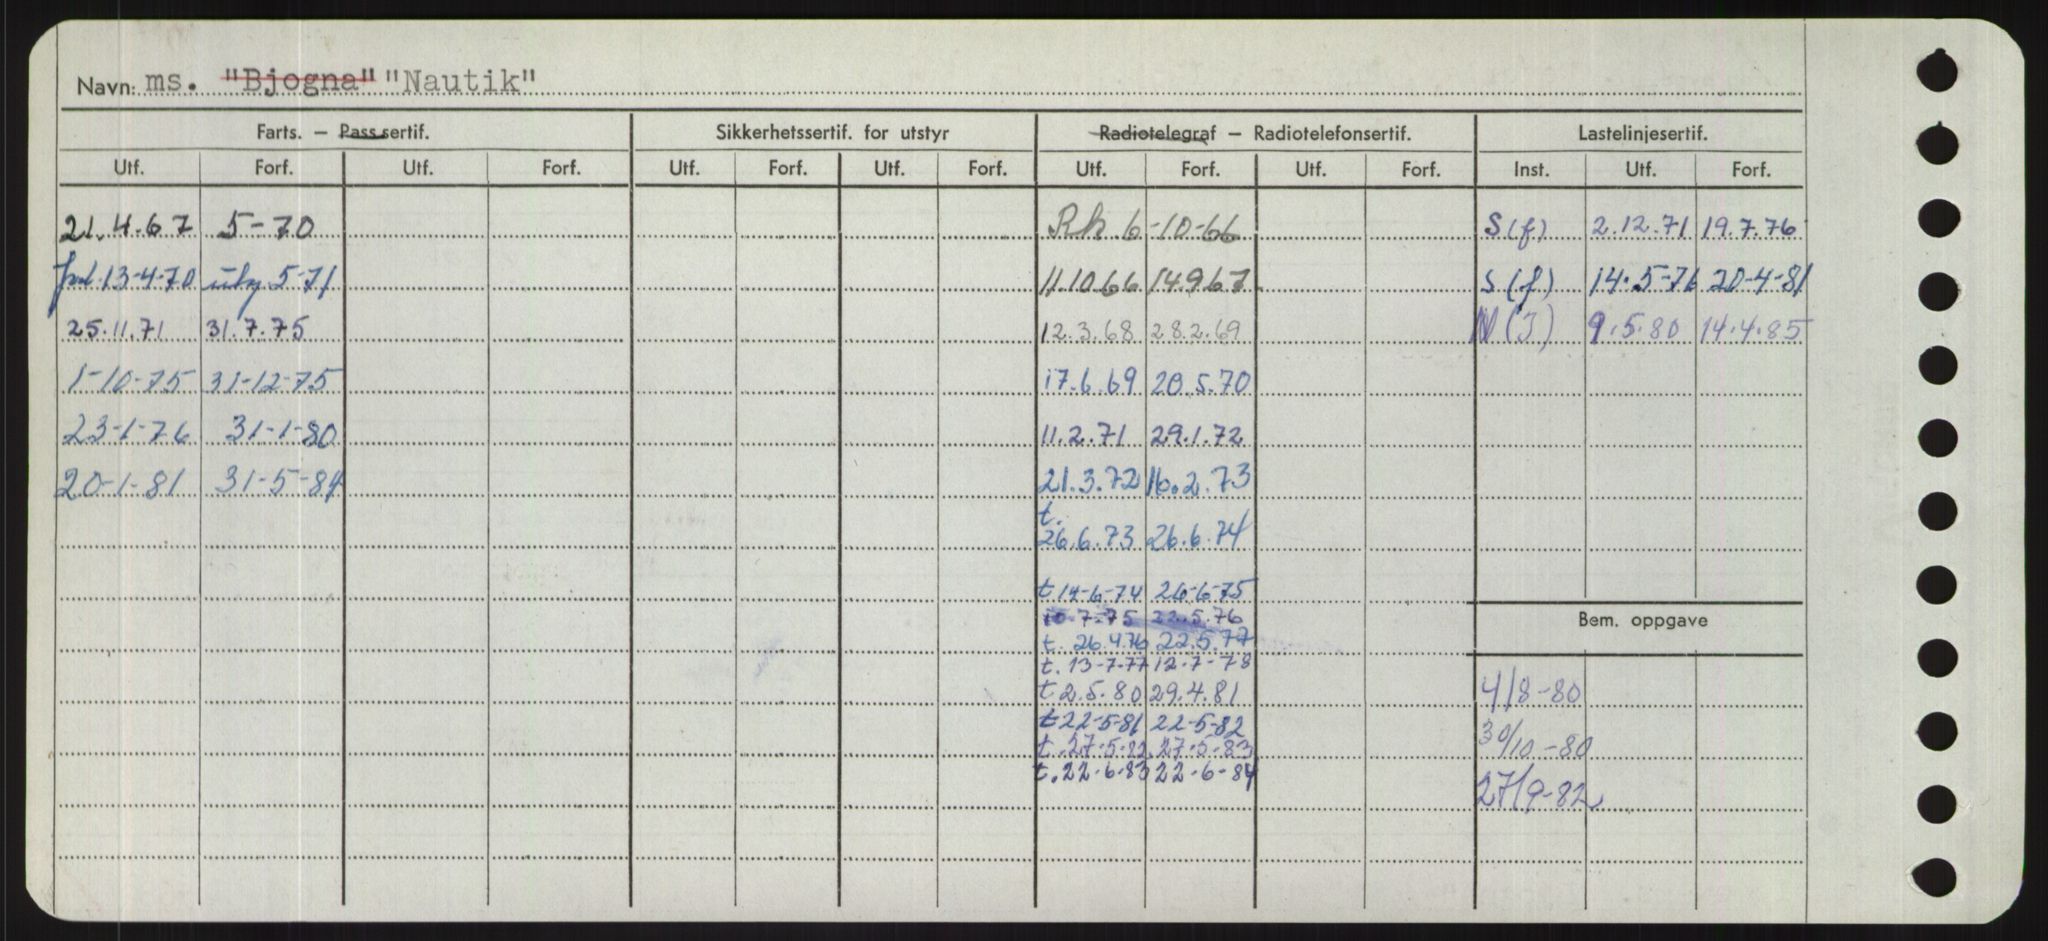 Navn: ms. "Bjogna" "Nautik"
Farts. – Pass.sertif. Sikkerhetssertif. for utstyr Radiotelegraf – Radiotelefonsertif. Lastelinjesertif.
Utf. Forf. Utf. Forf. Utf. Forf. Utf. Forf. Utf. Forf. Utf. Forf. Inst. Utf. Forf.
21.4.67 5-70 Rk 6-10-66 S(f) 2.12.71 19.7.76
13-4-70 5-71 11.10.66 14.9.67 S(f) 14.5-76 20-4-81
25.11.71 31.7.75 12.3.68 28.2.69 N(I) 9.5.80 14.4.85
1-10-75 31-12-75 17.6.69 20.5.70
23-1-76 31-1-80 11.2.71 29.1.72
20-1-81 31-5-84 21.3.72 16.2.73
t.
26.6.73 26.6.74
t 14-6-74 26-6-75
10-7-75 22.5.76
t. 26.4.76 22.5.77
t. 13-7-77 12-7-78
t 2.5.80 29.4.81
t 22-5-81 22-5-82
t. 27-5-82 27-5-83
t. 22-6-83 22-6-84
Bem. oppgave
4/8-80
30/10-80
27/9-82